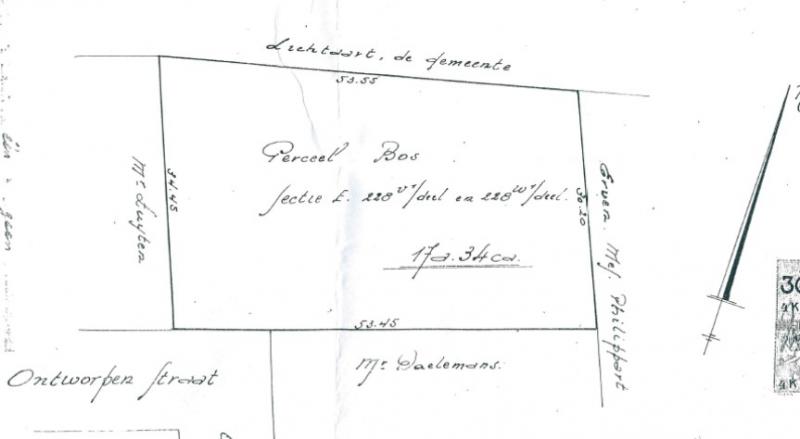 Lichtaart, de gemeente
53.55
Perceel Bos
sectie E. 228 v¹/deel en 228 w¹/deel.
17a.34ca.
34.45
Mr Luyten
30.20
Erven. Mej. Philippart
53.45
Mr Daelemans.
Ontworpen straat
één
geen
30